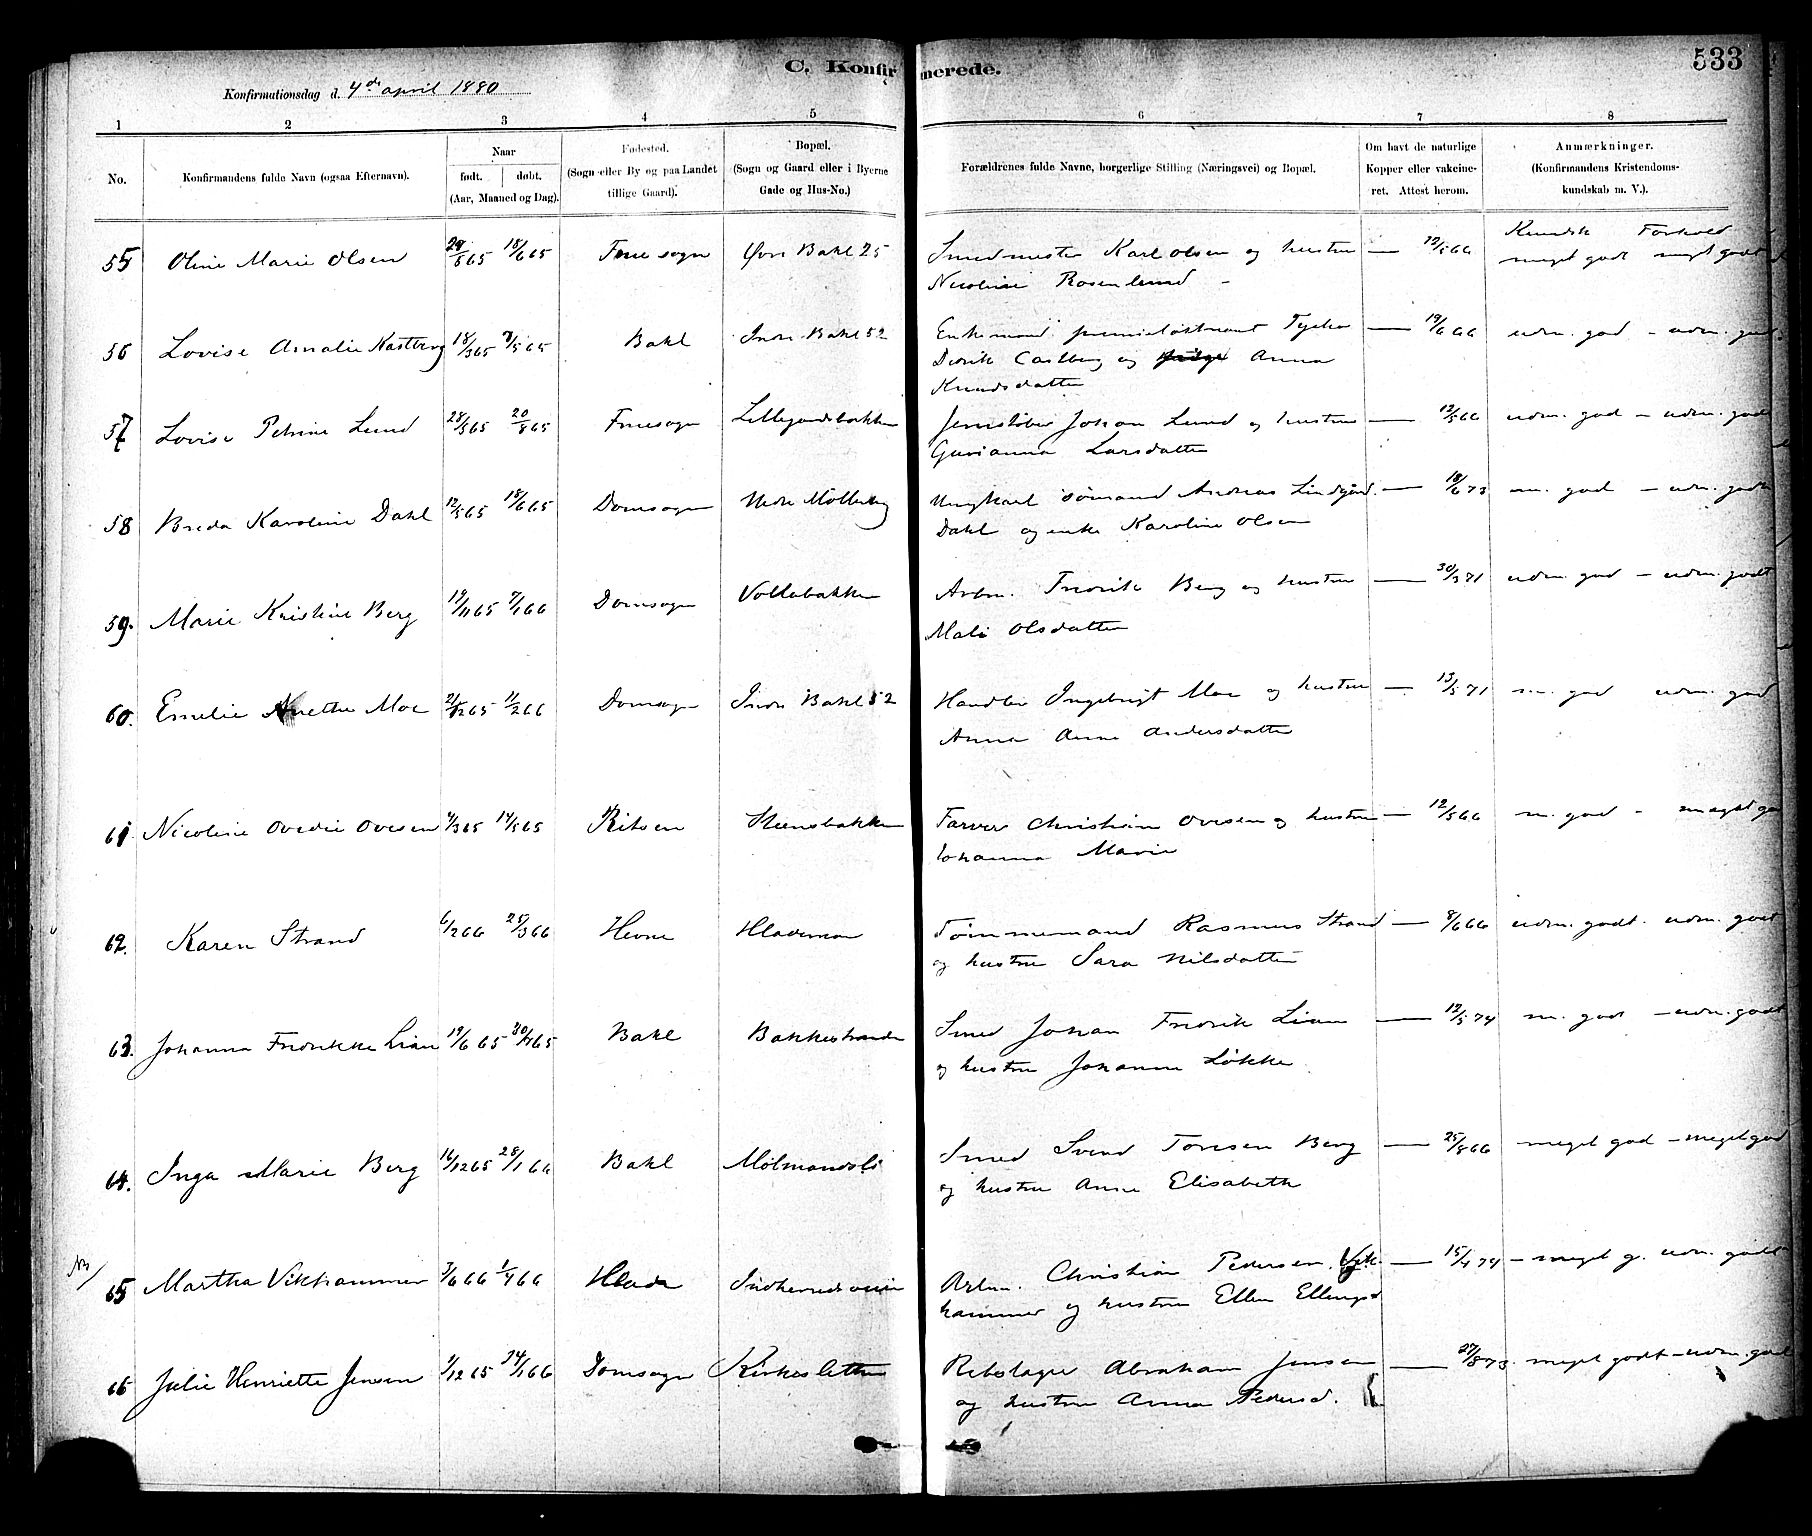 533
C. Konfirmerede.
Konfirmationsdag d. 4de april 1880
1 2 3 4 5 6 7 8
No. Konfirmandens fulde Navn (ogsaa Efternavn). Naar født. døbt. (Aar, Maaned og Dag). Fødested. (Sogn eller By og paa Landet tillige Gaard). Bopæl. (Sogn og Gaard eller i Byerne Gade og Hus-No.) Forældrenes fulde Navne, borgerlige Stilling (Næringsvei) og Bopæl. Om havt de naturlige Kopper eller vakcineret. Attest herom. Anmærkninger. (Konfirmandens Kristendomskundskab m. V.).
Kundsk Forhold
55 Oline Marie Olsen 18/6 65 Frue sogn Øvre Bakl 25 Smedmester Karl Olsen og hustru — 12/5 66 meget godt meget godt
Nicoline Rosenlund
56 Lovise Amalie Kastberg 18/3 65 7/5 65 Bakl Indre Bakl 52 Enkemand premierløitnant Tycho — 19/6 66 udm. god - udm. god
Didrik Castberg og Anna
Knudsdatter
57 Lovise Petrine Lund 28/5 65 20/8 65 Fruesogn Lillegaardsbakken Jernstøber Johan Lund og hustru — 12/5 66 udm. god - udm. godt
Gurianna Larsdatter
58 Breda Karoline Dahl 12/5 65 18/6 65 Domsogn Nedre Møllenberg Ungkarl sømand Andreas Lindgård — 18/6 73 m. god - udm. godt
Dahl og enke Karoline Olsen
59. Marie Kristine Berg 19/11 65 7/1 66 Domsogn Voldabakken Arbm. Fredrik Berg og hustru — 30/3 71 udm. god - udm. godt
Mali Olsdatter
60. Emelie Anette Moe 21/12 65 11/2 66 Domsogn Indre Bakl 52 Handler Ingebrigt Moe og hustru — 13/5 71 m. god udm. god
Anna Anne Andersdatter
61. Nicoline Ovedie Ovesen 4/3 65 14/5 65 Ritsen Steensbakken Farver Christian Ovesen og hustru — 12/5 66 m. god - meget go
Johanna Marie
62. Karen Strand 6/2 66 25/3 66 Hevne Hlademoen Tømmermand Rasmus Strand — 8/6 66 udm. godt. udm. godt
og hustru Sara Nilsdatter
63. Johanna Fredrikke Lian 19/6 65 30/7 65 Bakl Bakkestranden Smed Johan Fredrik Lian — 12/5 74 m. godt - udm. godt
og hustru Johanne Løkke
64. Inga Marie Berg 16/12 65 28/1 66 Bakl Mølmandsli Smed Svend Toresen Berg — 25/8 66 meget god - meget god
og hustru Anne Elisabeth
65 Martha Vikhammer 3/6 66 1/7 66 Hlade Indherredsveien Arbm. Christian Pedersen Vik- — 15/4 74 - meget g. udm. godt
hammer og hustru Ellen Ellingsd
66 Julie Henriette Jensen 1/12 65 14/1 66 Domsogn Kirkesletten Rebslager Abraham Jensen — 27/8 73. meget godt - udm. god
og hustru Anna Pedersd.